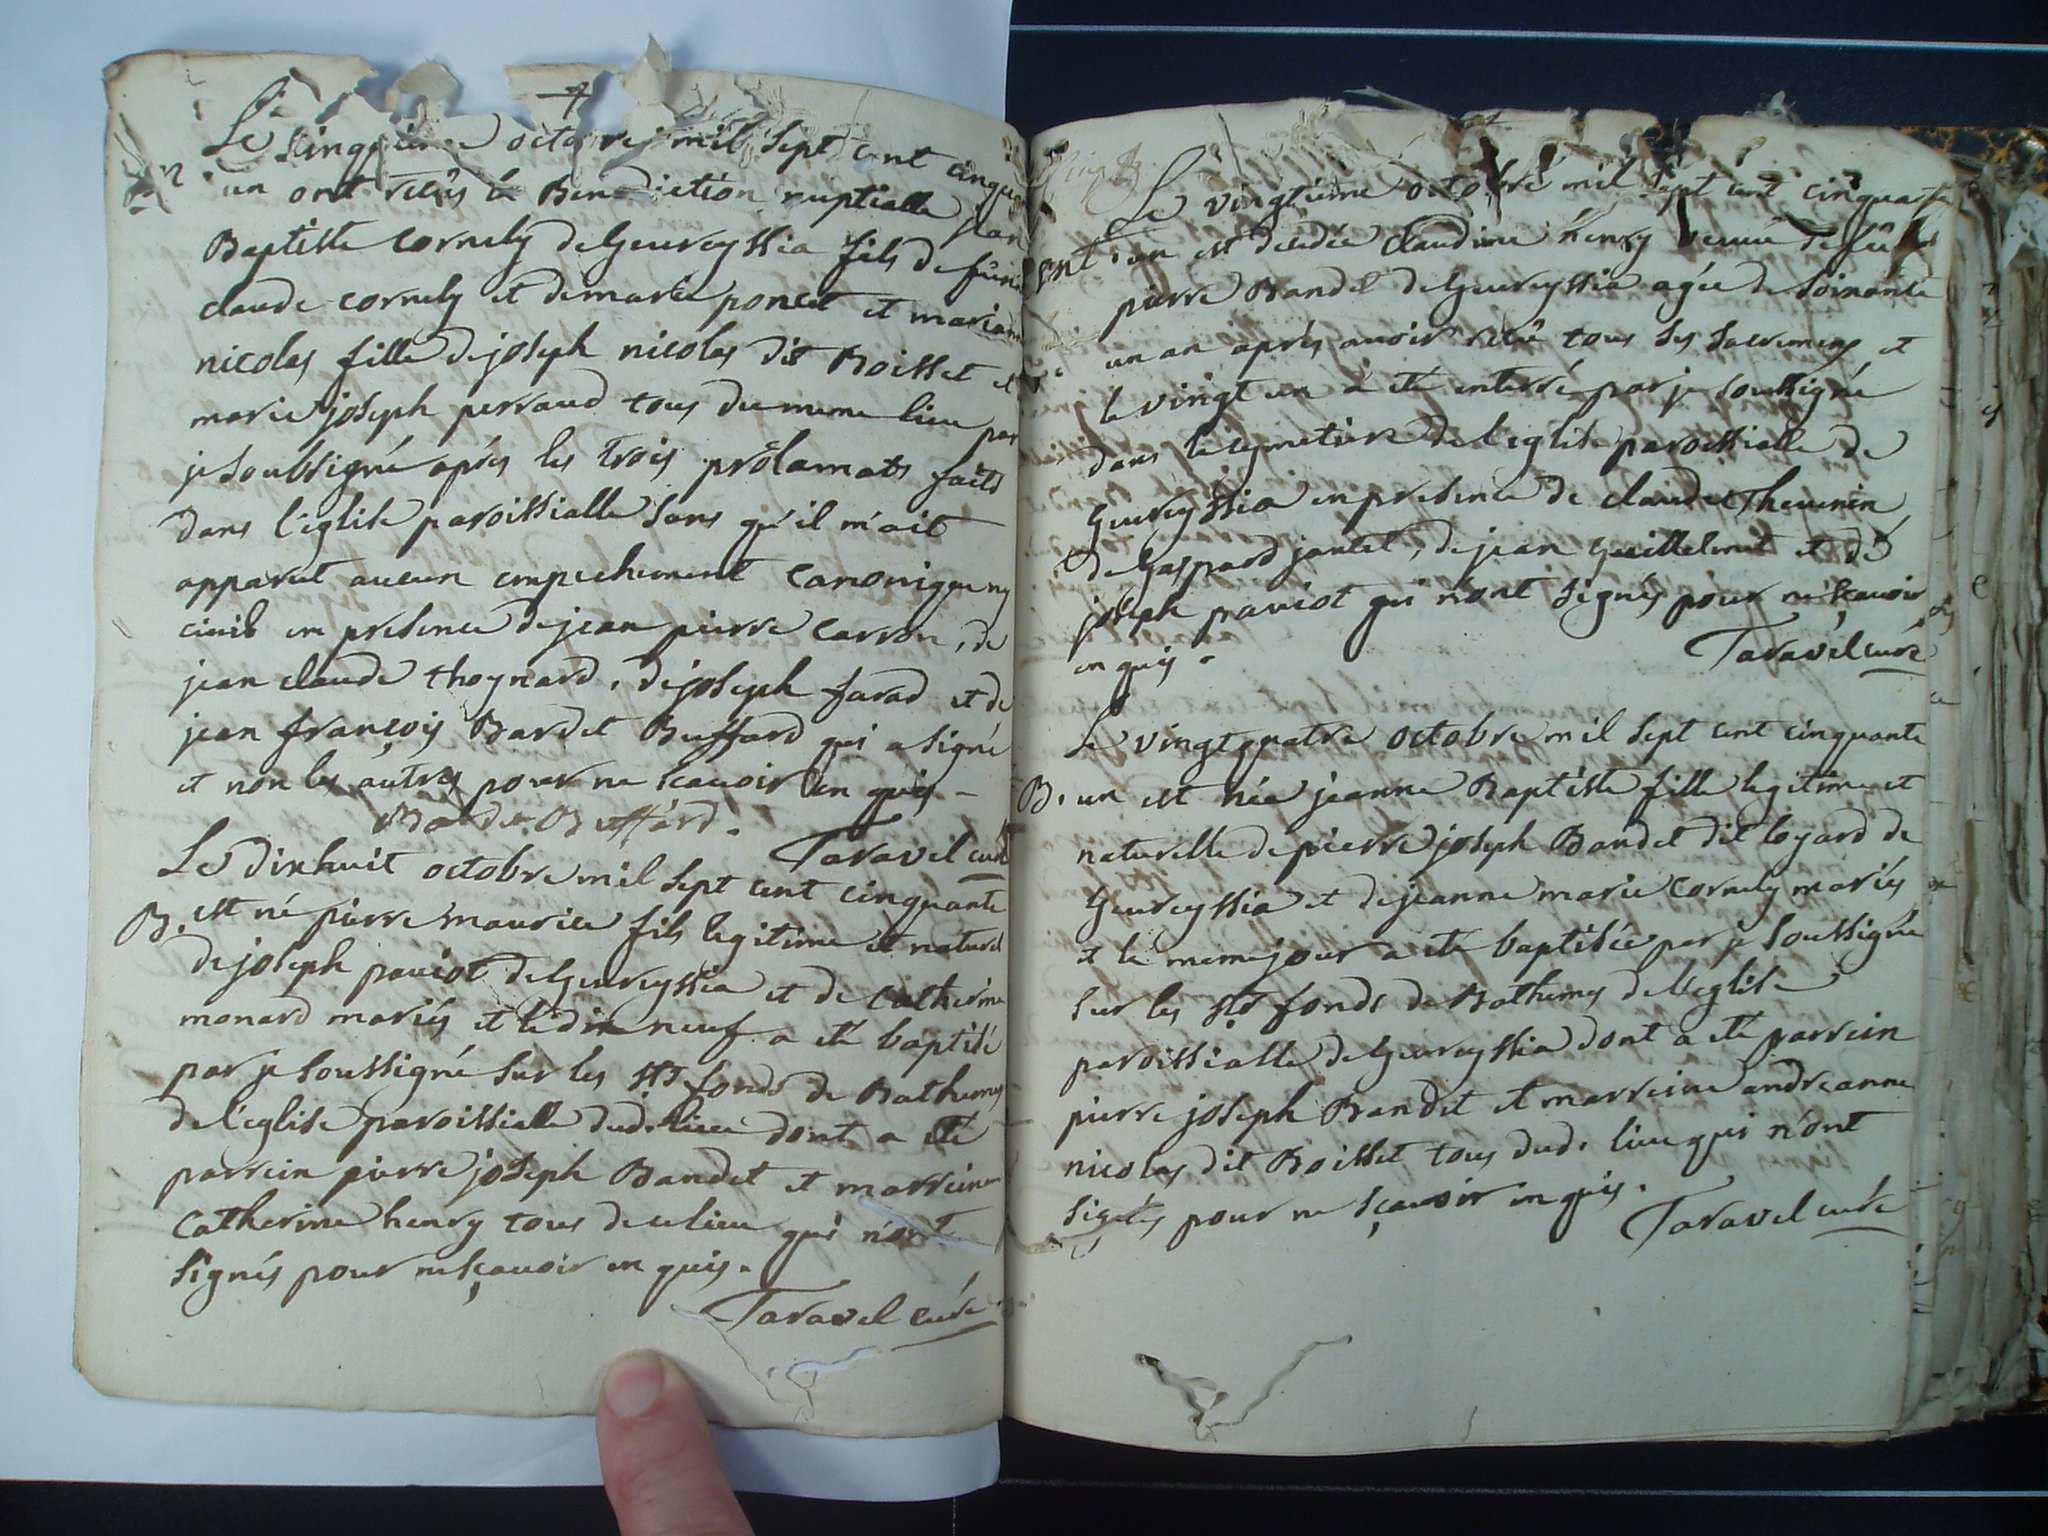 Le cinquieme octobre mil sept cent cinquante
un ont reçus la Benediction nuptialle Jean
Baptiste Cornely de Gevreyssia fils de furent
claude cornely et de marie poncet et marianne
nicolas fille de joseph nicolas dit Boisset et
marie joseph perraud tous du meme lieu par
je soussigné apres les trois prolamats faits
dans l'eglise paroissialle sans qu'il m'ait
apparut aucun empechement canonique ny
civil en presence de jean pierre carron, de
jean claude thoynard, de joseph farad et de
jean françois Bardet Buffard qui a signé
et non les autres pour ne scavoir en quis –
Bardet Buffard.
Taravel curé
Le dixhuit octobre mil sept cent cinquante
B. est né pierre maurice fils legitime et naturel
de joseph paviot de Gevreyssia et de Catherine
monard mariés et le dix neuf a été baptisé
par je soussigné sur les sts fonds de Bathemes
de l'eglise paroissialle dud. lieu dont a été
parrein pierre joseph Bandet et marreine
Catherine henry tous de ce lieu qui n'ont
signés pour ne sçavoir en quis.
Taravel curé
Le vingtieme octobre mil sept cent cinquante
un est decedée claudine henry veuve de fû
pierre Bandet de Gevreyssia agée de soixante
un an après avoir reçû tous ses sacremens et
le vingt un a été enterré par je soussigné
dans le cymetiere de l'eglise paroissialle de
Gevreyssia en presence de claude Thevenin
de Gaspard jantet, de jean Guillelmet et de
joseph paviot qui n'ont signés pour ne sçavoir
en quis.
Taravel curé
Le vingt quatre octobre mil sept cent cinquante
B. un est née jeanne Baptiste fille legitime et
naturelle de pierre joseph Bandet dit loyard de
Gevreyssia et de jeanne marie cornely mariés
et le meme jour a été baptisée par je soussigné
sur les sts fonds de Bathemes de l'eglise
paroissialle de Gevreyssia dont a été parrein
pierre joseph Bandet et marreine andreanne
nicolas dit Boisset tous dud. lieu qui n'ont
signés pour ne sçavoir en quis.
Taravel curé